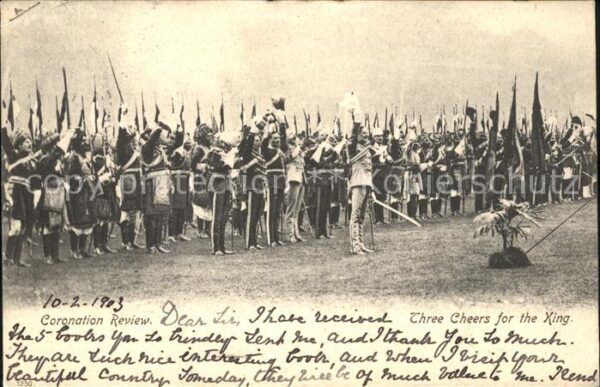 Copyright Kopierschutz
10-2-1903
Coronation Review. Dear Sir, I have received Three Cheers for the King.
The 5 books You So kindley Sent Me, And I thank You So Much.
They are Such nice interesting books, and When I Visit Your
beautiful Country Someday, they will be of Much Value to Me. I Send
1250